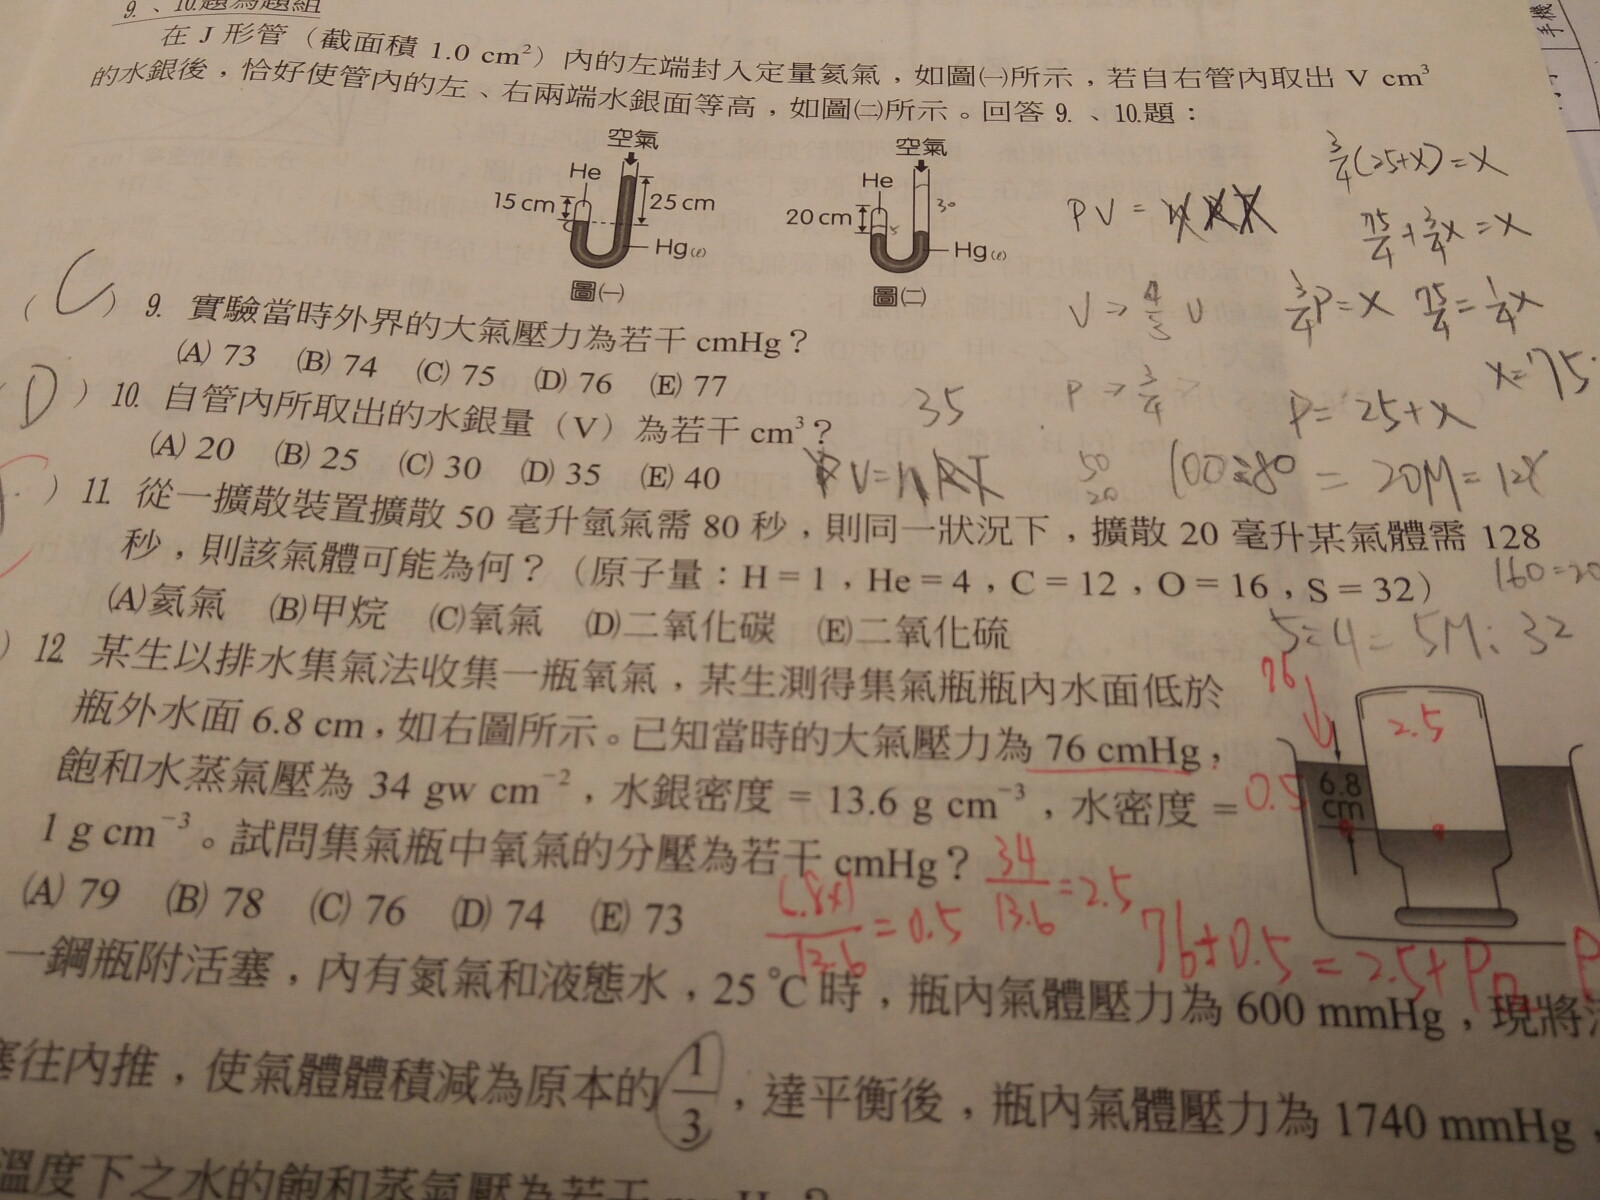 9.、10.題為題組
在 J 形管（截面積 1.0 cm²）內的左端封入定量氦氣，如圖㈠所示，若自右管內取出 V cm³
的水銀後，恰好使管內的左、右兩端水銀面等高，如圖㈡所示。回答 9.、10.題：
空氣
He
15 cm
25 cm
Hg(ℓ)
圖㈠
空氣
He
20 cm
5
30
Hg(ℓ)
圖㈡
PV =
V → 4/3 V
P → 3/4
3/4(25+x) = x
75/4 + 3/4x = x
3/4P = x 75/4 = 1/4x
x = 75
P = 25+x
( C ) 9. 實驗當時外界的大氣壓力為若干 cmHg？
(A) 73 (B) 74 (C) 75 (D) 76 (E) 77
( D ) 10. 自管內所取出的水銀量（V）為若干 cm³？
35
(A) 20 (B) 25 (C) 30 (D) 35 (E) 40
PV=nRT
50
20
100:80 = 20M = 128
) 11. 從一擴散裝置擴散 50 毫升氫氣需 80 秒，則同一狀況下，擴散 20 毫升某氣體需 128
秒，則該氣體可能為何？（原子量：H = 1，He = 4，C = 12，O = 16，S = 32）
160=20
(A)氦氣 (B)甲烷 (C)氧氣 (D)二氧化碳 (E)二氧化硫
5:4 = 5M:32
) 12. 某生以排水集氣法收集一瓶氧氣，某生測得集氣瓶瓶內水面低於
瓶外水面 6.8 cm，如右圖所示。已知當時的大氣壓力為 76 cmHg，
飽和水蒸氣壓為 34 gw cm⁻²，水銀密度 = 13.6 g cm⁻³，水密度 =
1 g cm⁻³。試問集氣瓶中氧氣的分壓為若干 cmHg？
(A) 79 (B) 78 (C) 76 (D) 74 (E) 73
76
2.5
0.5
6.8
cm
6.8×1/13.6 = 0.5
34/13.6 = 2.5
76+0.5 = 2.5+P
一鋼瓶附活塞，內有氮氣和液態水，25 ℃時，瓶內氣體壓力為 600 mmHg，現將活
塞往內推，使氣體體積減為原本的 1/3，達平衡後，瓶內氣體壓力為 1740 mmHg，
溫度下之水的飽和蒸氣壓為若干 mmHg？